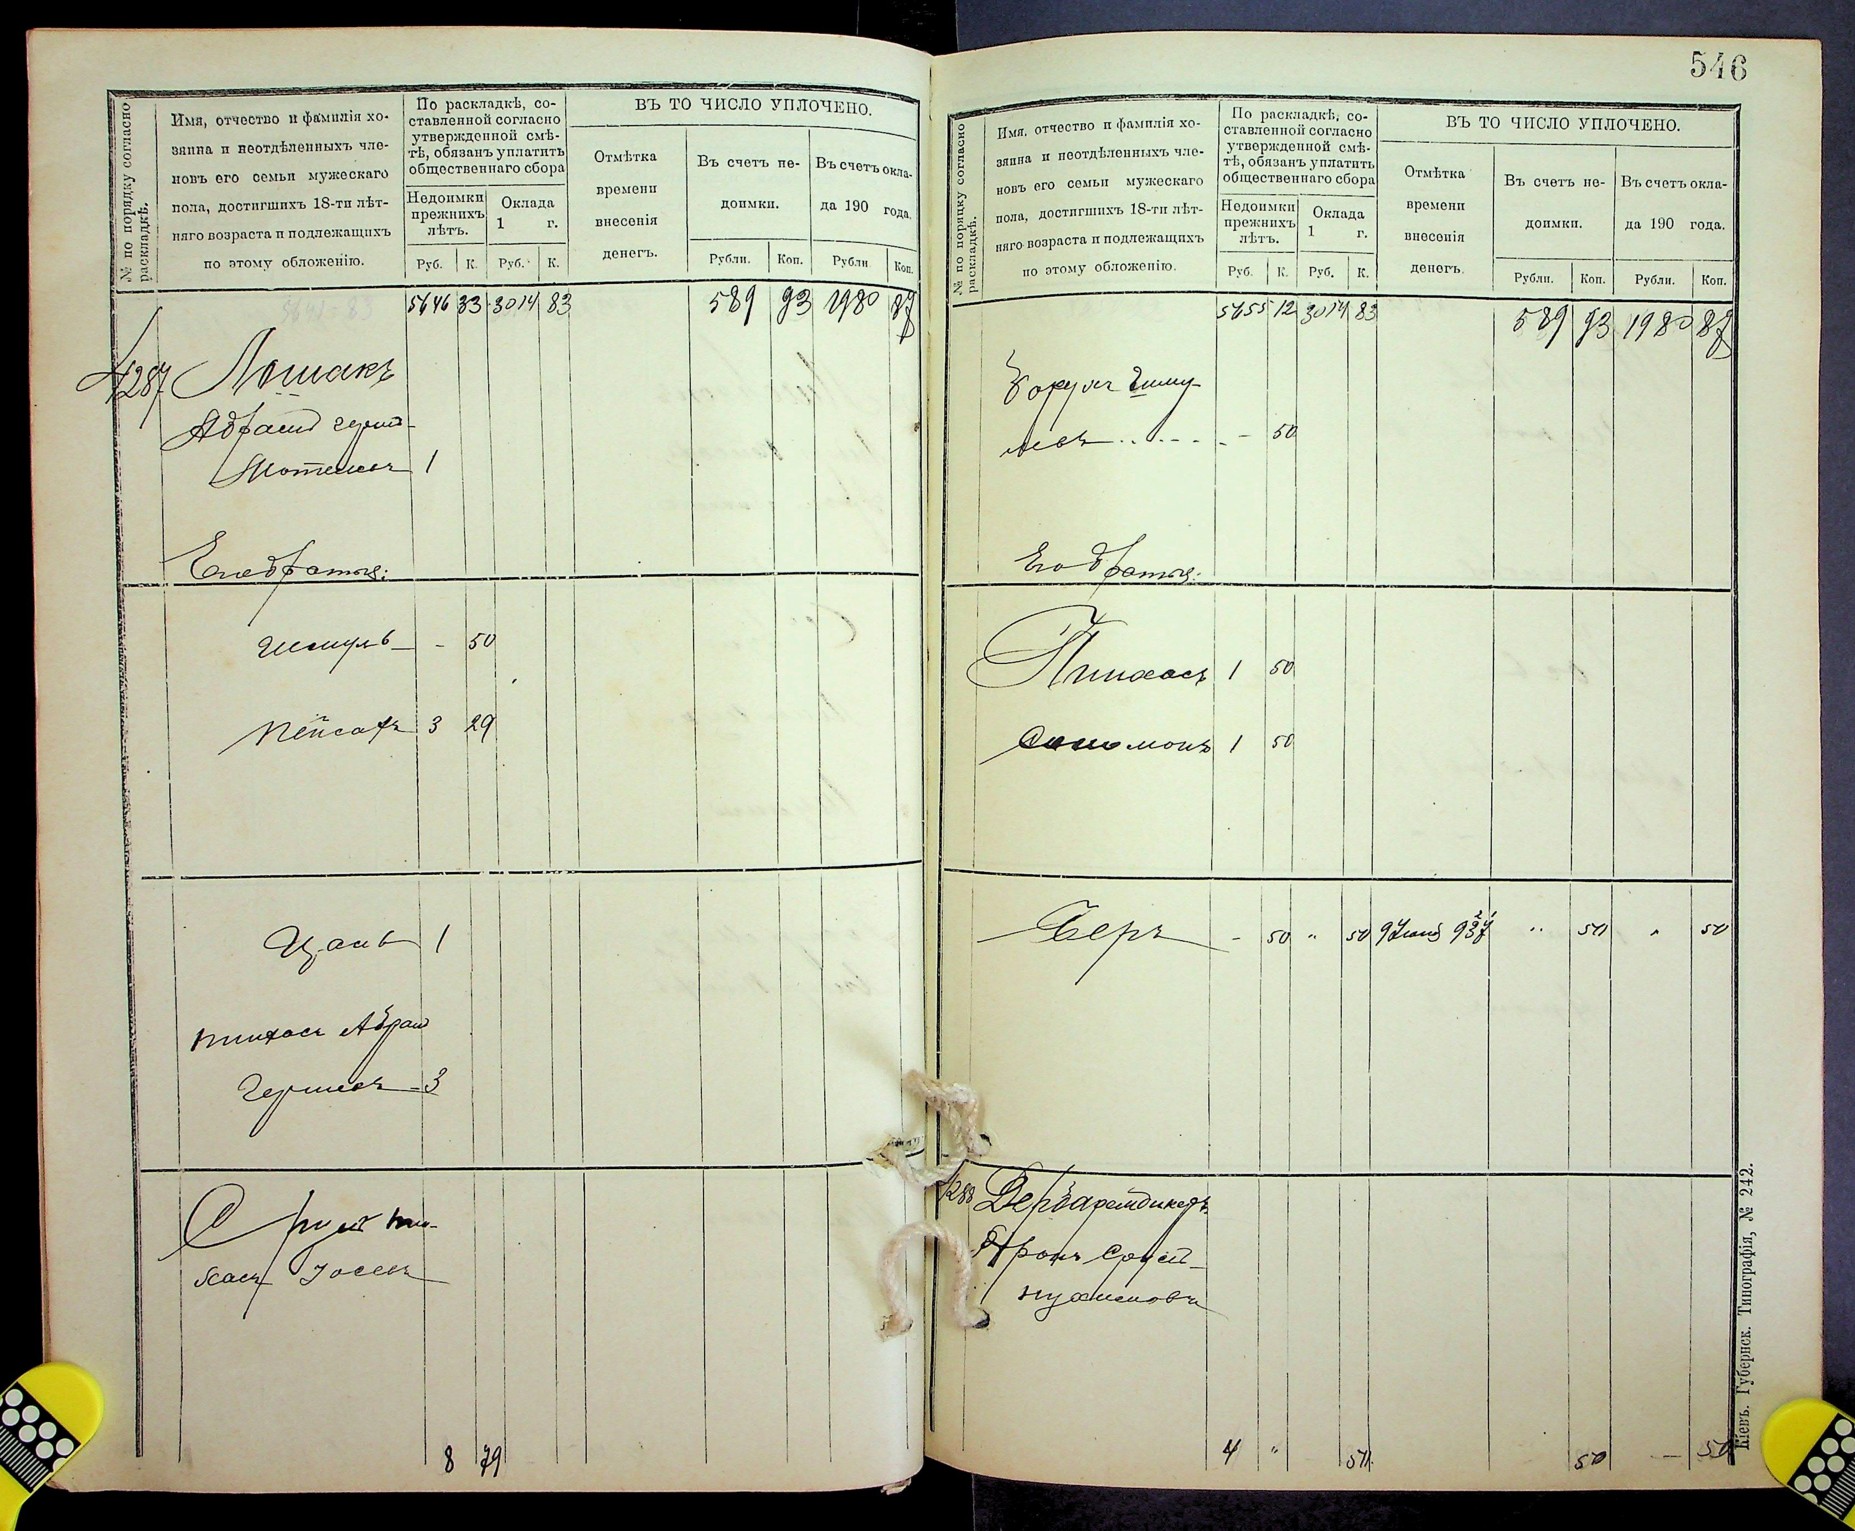 № по порядку согласно раскладкѣ.
Имя, отчество и фамилія хо-
зяина и неотдѣленныхъ чле-
новъ его семьи мужескаго
пола, достигшихъ 18-ти лѣт-
няго возраста и подлежащихъ
по этому обложенію.
По раскладкѣ, со-
ставленной согласно
утвержденной смѣ-
тѣ, обязанъ уплатить
общественнаго сбора
Недоимки
прежнихъ
лѣтъ.
Оклада
1 г.
Руб. К. Руб. К.
ВЪ ТО ЧИСЛО УПЛОЧЕНО.
Отмѣтка
времени
внесенія
денегъ.
Въ счетъ не-
доимки.
Въ счетъ окла-
да 190 года.
Рубли. Коп. Рубли Коп.
5646 33 3014 83 589 93 1980 87
4287 Лошакъ
Абрамъ Герш-
Мотелевъ 1
Его братья:
Шмуль - 50
Пейсахъ 3 29
Цаль 1
Пинхасъ Абрам
Гершевъ 3
Сруль Пин-
хасъ Іосевъ
8 79
546
№ по порядку согласно раскладкѣ.
Имя, отчество и фамилія хо-
зяина и неотдѣленныхъ чле-
новъ его семьи мужескаго
пола, достигшихъ 18-ти лѣт-
няго возраста и подлежащихъ
по этому обложенію.
По раскладкѣ, со-
ставленной согласно
утвержденной смѣ-
тѣ, обязанъ уплатить
общественнаго сбора
Недоимки
прежнихъ
лѣтъ.
Оклада
1 г.
Руб. К. Руб. К.
ВЪ ТО ЧИСЛО УПЛОЧЕНО.
Отмѣтка
времени
внесенія
денегъ.
Въ счетъ не-
доимки.
Въ счетъ окла-
да 190 года.
Рубли. Коп. Рубли. Коп.
5655 12 3014 83 589 93 1980 87
Борухъ Шму-
левъ - 50
Его братья:
Пинхасъ 1 50
Соломонъ 1 50
Беръ - 50 " 50 " 50 " 50
4288
Аронъ Срул-
Нухимовъ
4 " 50 50 — 50
Кіевъ. Губернск. Типографія, № 242.